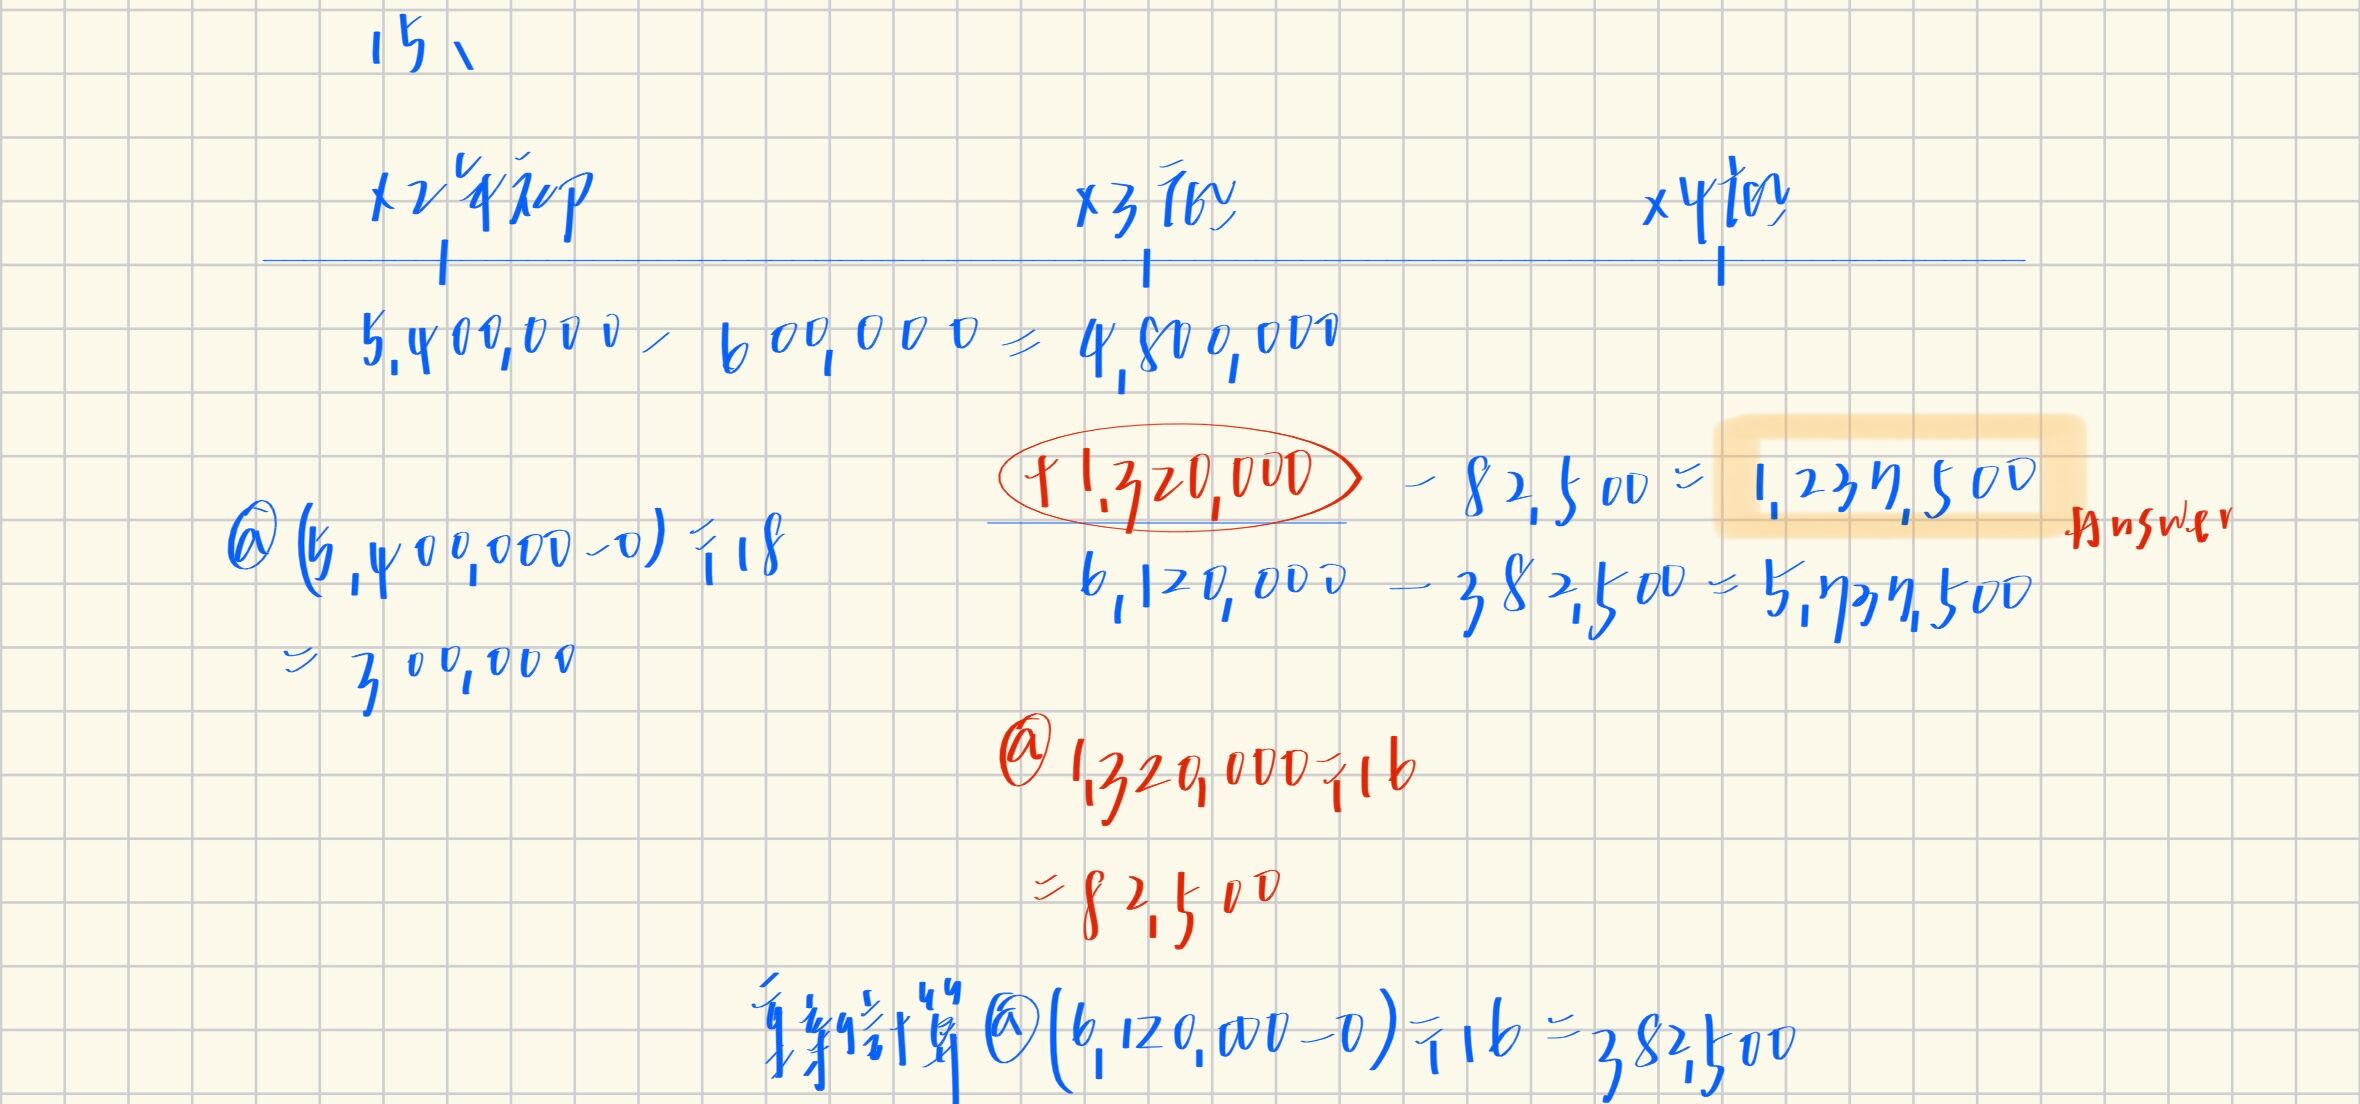 15、
x2年初 x3初 x4初
5,400,000 - 600,000 = 4,800,000
+1,320,000 - 82,500 = 1,237,500 Answer
@(5,400,000-0)÷18
6,120,000 - 382,500 = 5,737,500
= 300,000
@1,320,000÷16
= 82,500
重新計算@(6,120,000-0)÷16=382,500